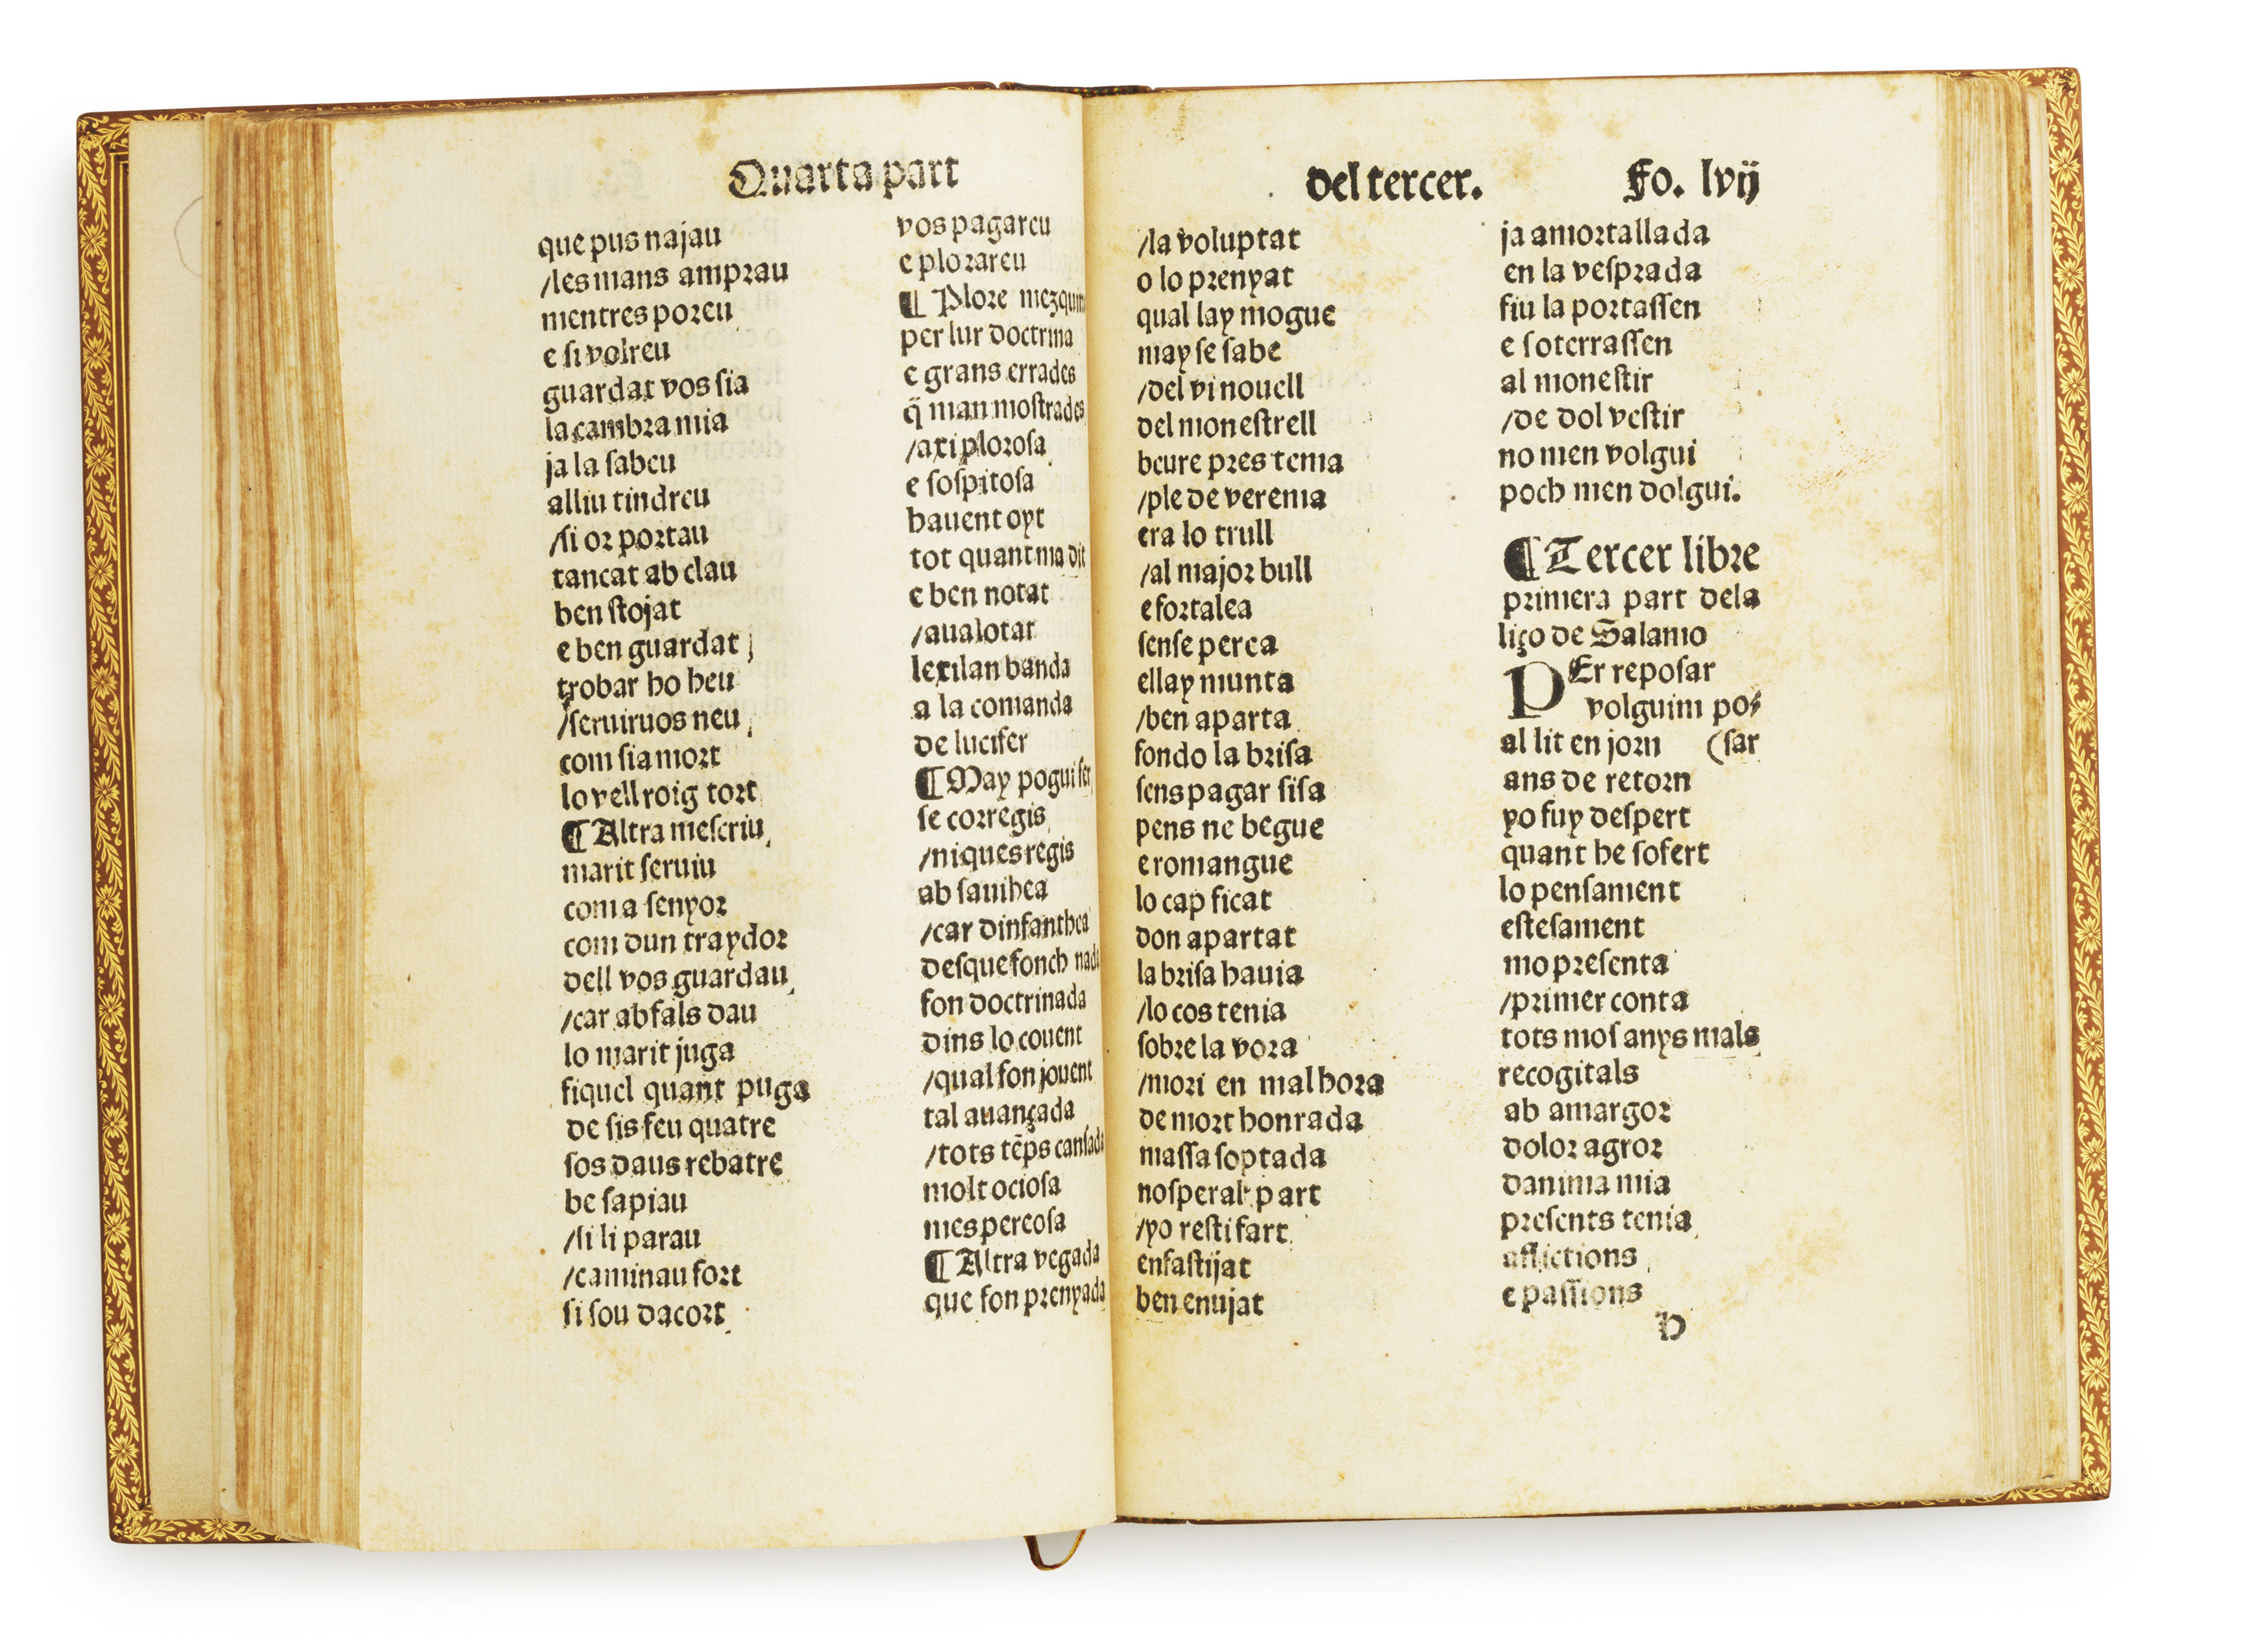 Quarta part
que pus najau
/les mans amprau
mentres poreu
e si volreu
guardat vos sia
la cambra mia
ja la sabeu
alliu tindreu
/si or portau
tancat ab clau
ben stojat
e ben guardat
trobar ho heu
/seruiruos neu
com sia mort
lo vell roig tort
¶ Altra mescriu
marit seruiu
com a senyor
com dun traydor
dell vos guardau
/car ab fals dau
lo marit juga
fiquel quant puga
de sis feu quatre
sos daus rebatre
be sapiau
/si li parau
/caminau fort
si sou dacort
vos pagareu
e plorareu
¶ Plore mezquina
per lur doctrina
e grans errades
q̃ man mostrades
/axi plorosa
e sospitosa
hauent oyt
tot quant ma dit
e ben notat
/aualotat
lexilan banda
a la comanda
de lucifer
¶ May pogui fer
se corregis
/niques regis
ab sauihea
/car dinfanthea
desque fonch nada
fon doctrinada
dins lo couent
/qual fon jouent
tal auançada
/tots tẽps cansada
molt ociosa
mes pereosa
¶ Altra vegada
que fon prenyada
del tercer. Fo. lvij
/la voluptat
o lo prenyat
qual lay mogue
may se sabe
/del vi nouell
del monestrell
beure pres tema
/ple de verema
era lo trull
/al major bull
e fortalea
sense perea
ellay munta
/ben aparta
fondo la brisa
sens pagar sisa
pens ne begue
e romangue
lo cap ficat
don apartat
la brisa hauia
/lo cos tenia
sobre la vora
/mori en mal hora
de mort honrada
massa soptada
nosperal part
/yo resti fart
enfastijat
ben enujat
ja amortallada
en la vesprada
fiu la portassen
e soterrassen
al monestir
/de dol vestir
no men volgui
poch men dolgui.
¶ Tercer libre
primera part dela
liço de Salamo
PEr reposar
volguim po⸗
al lit en jorn (sar
ans de retorn
yo fuy despert
quant he sofert
lo pensament
estesament
mo presenta
/primer conta
tots mos anys mals
recogitals
ab amargor
dolor agror
danima mia
presents tenia
aflictions
e passions
h